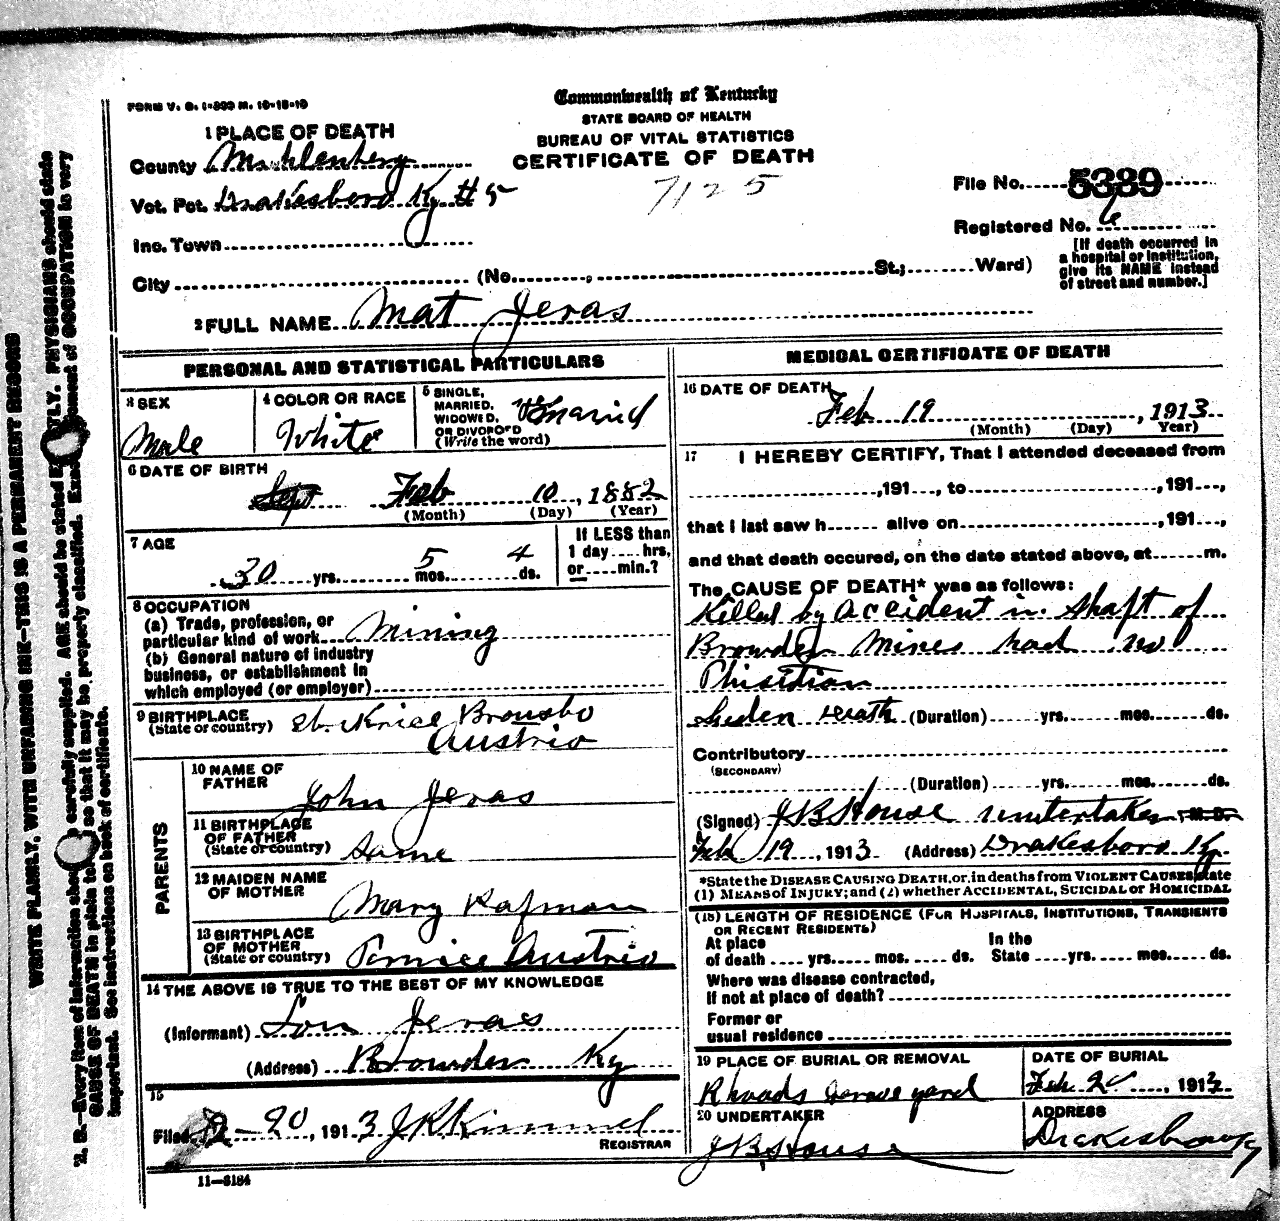 FORM V. S. 1-300 M. 10-15-10
Commonwealth of Kentucky
STATE BOARD OF HEALTH
BUREAU OF VITAL STATISTICS
CERTIFICATE OF DEATH
7125
1 PLACE OF DEATH
County Muhlenberg
Vot. Pct. Drakesboro Ky #5
Inc. Town
City (No. , St.; Ward)
File No. 5339
Registered No. 6
[If death occurred in
a hospital or institution,
give its NAME instead
of street and number.]
2 FULL NAME Mat Jeras
PERSONAL AND STATISTICAL PARTICULARS
3 SEX
Male
4 COLOR OR RACE
White
5 SINGLE,
MARRIED,
WIDOWED,
OR DIVORCED
(Write the word)
Maried
6 DATE OF BIRTH
Sept Feb 10, 1882
(Month) (Day) (Year)
7 AGE
30 yrs. 5 mos. 4 ds.
If LESS than
1 day hrs,
or min.?
8 OCCUPATION
(a) Trade, profession, or
particular kind of work Mining
(b) General nature of industry
business, or establishment in
which employed (or employer)
9 BIRTHPLACE
(State or country) St.
Austrio
PARENTS
10 NAME OF
FATHER
John Jeras
11 BIRTHPLACE
OF FATHER
(State or country) Same
12 MAIDEN NAME
OF MOTHER
Mary Kafman
13 BIRTHPLACE
OF MOTHER
(State or country) Austrio
14 THE ABOVE IS TRUE TO THE BEST OF MY KNOWLEDGE
(Informant) Lou Jeras
(Address) Browden Ky
15
Filed 2-20, 1913 JR Kimmel
REGISTRAR
11-3184
MEDICAL CERTIFICATE OF DEATH
16 DATE OF DEATH
Feb 19, 1913
(Month) (Day) Year)
17 I HEREBY CERTIFY, That I attended deceased from
,191 , to ,191 ,
that I last saw h alive on ,191 ,
and that death occured, on the date stated above, at m.
The CAUSE OF DEATH* was as follows:
Killed by accident in shaft of
Browder Mines had no
Phisitian
Suden Death (Duration) yrs. mos. ds.
Contributory
(SECONDARY)
(Duration) yrs. mos. ds.
(Signed) J B House undertaker M.D.
Feb 19, 1913 (Address) Drakesboro Ky
*State the DISEASE CAUSING DEATH, or, in deaths from VIOLENT CAUSES, state
(1) MEANS of INJURY; and (2) whether ACCIDENTAL, SUICIDAL or HOMICIDAL
(18) LENGTH OF RESIDENCE (FOR HOSPITALS, INSTITUTIONS, TRANSIENTS
OR RECENT RESIDENTS)
At place
of death yrs. mos. ds.
In the
State yrs. mos. ds.
Where was disease contracted,
If not at place of death?
Former or
usual residence
19 PLACE OF BURIAL OR REMOVAL
Rhoads Grave yard
DATE OF BURIAL
Feb 20, 1913
20 UNDERTAKER
J B House
ADDRESS
Drakesboro Ky
WRITE PLAINLY, WITH UNFADING INK—THIS IS A PERMANENT RECORD
N. B.—Every item of information should be carefully supplied. AGE should be stated EXACTLY. PHYSICIANS should state
CAUSE OF DEATH in plain terms, so that it may be properly classified. Exact statement of OCCUPATION is very
important. See instructions on back of certificate.